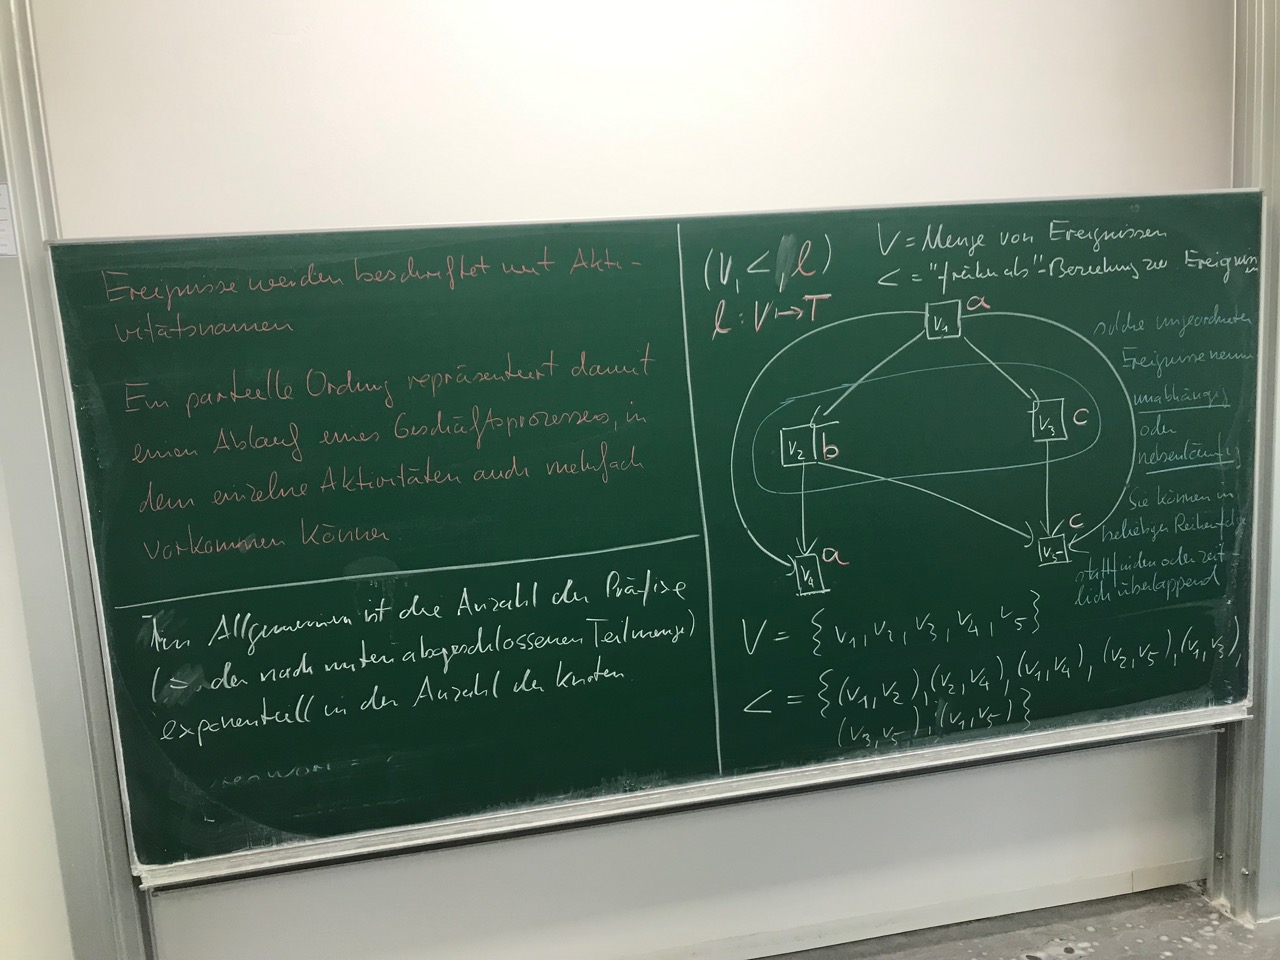 Ereignisse werden beschriftet mit Akti-
vitätsnamen
Ein partielle Ordnung repräsentiert damit
einen Ablauf eines Geschäftsprozesses, in
dem einzelne Aktivitäten auch mehrfach
vorkommen können
Im Allgemeinen ist die Anzahl der Präfixe
(= der nach unten abgeschlossenen Teilmenge)
exponentiell in der Anzahl der Knoten
(V, <, l)
l : V ↦ T
V = Menge von Ereignissen
< = "früher als"-Beziehung zw. Ereignissen
v₁ a
v₂ b
v₃ c
v₄ a
v₅ c
solche ungeordneten
Ereignisse nennen
unabhängig
oder
nebenläufig
Sie können in
beliebiger Reihenfolge
stattfinden oder zeit-
lich überlappend
V = {v₁, v₂, v₃, v₄, v₅}
< = {(v₁,v₂),(v₂,v₄),(v₁,v₄),(v₂,v₅),(v₁,v₃),
(v₃,v₅),(v₁,v₅)}